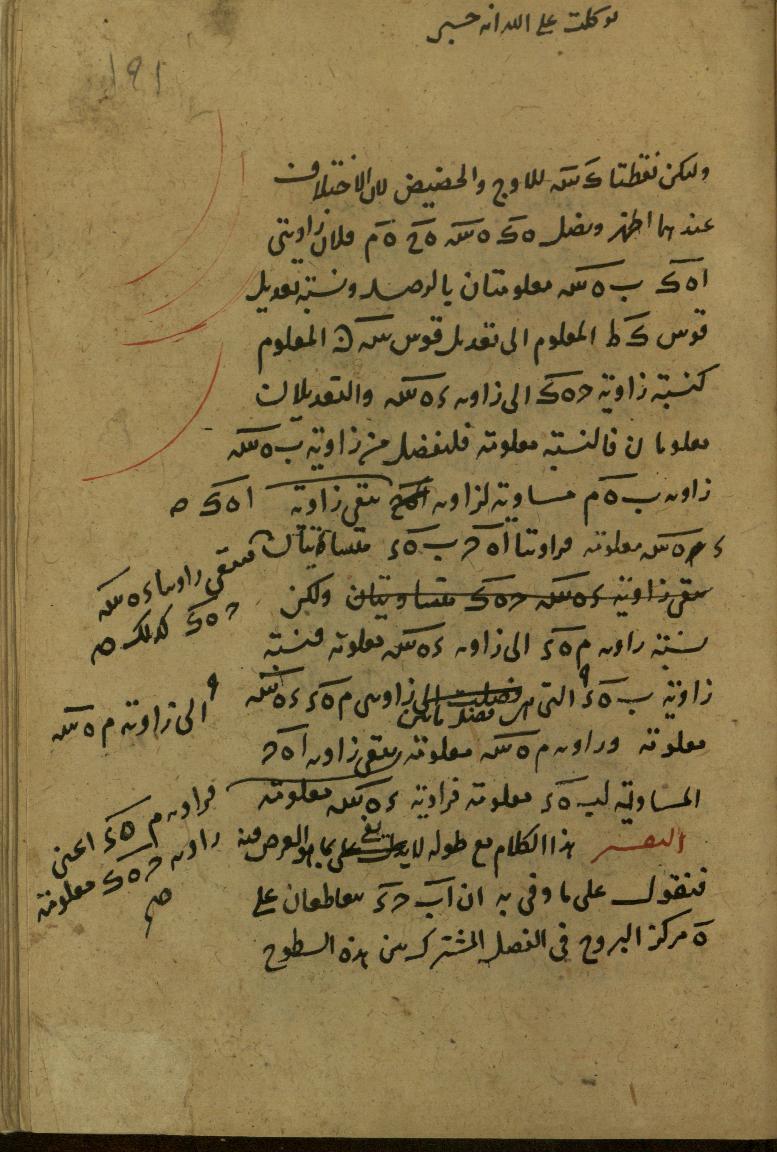 توكلت على الله انه حسبي
١٩١
وليكن نقطتا ك س للاوج والحضيض لان الاختلاف
عندهما اظهر ونصل ه ك ه س ه ح ه م فلان زاويتي
ا ه ك ب ه س معلومتان بالرصد ونسبة تعديل
قوس ك ط المعلوم الى تعديل قوس س ن المعلوم
كنسبة زاوية ح ه ك الى زاوية ء ه س والتعديلان
معلومان فالنسبة معلومة فلنفصل من زاوية ب ه س
زاوية ب ه م مساوية لزاوية ا ه ك تبقى زاوية
ء ه س معلومة فزاويتا ا ه ح ب ه ء متساويتان فتبقى زاويتا ء ه س
ح ه ك كذلك صح
تبقى زاوية ء ه س ح ه ك متساويتان ولكن
نسبة زاوية م ه ء الى زاوية ء ه س معلومة فنسبة
زاوية ب ه ء التي هي فضلت الى زاويتي م ه ء ء ه س
الى زاوية م ه س
معلومة وزاوية م ه س معلومة تبقى زاوية ا ه ح
المساوية لب ه ء معلومة فزاوية ء ه س معلومة
فزاوية م ه ء اعني
زاوية ح ه ك معلومة
صح
التفسير هذا الكلام مع طوله لا يفي بما هو الغرض منه
فنقول على ما وفى به ان ا ب ح ء يتقاطعان على
ه مركز البروج في الفصل المشترك بين هذه السطوح